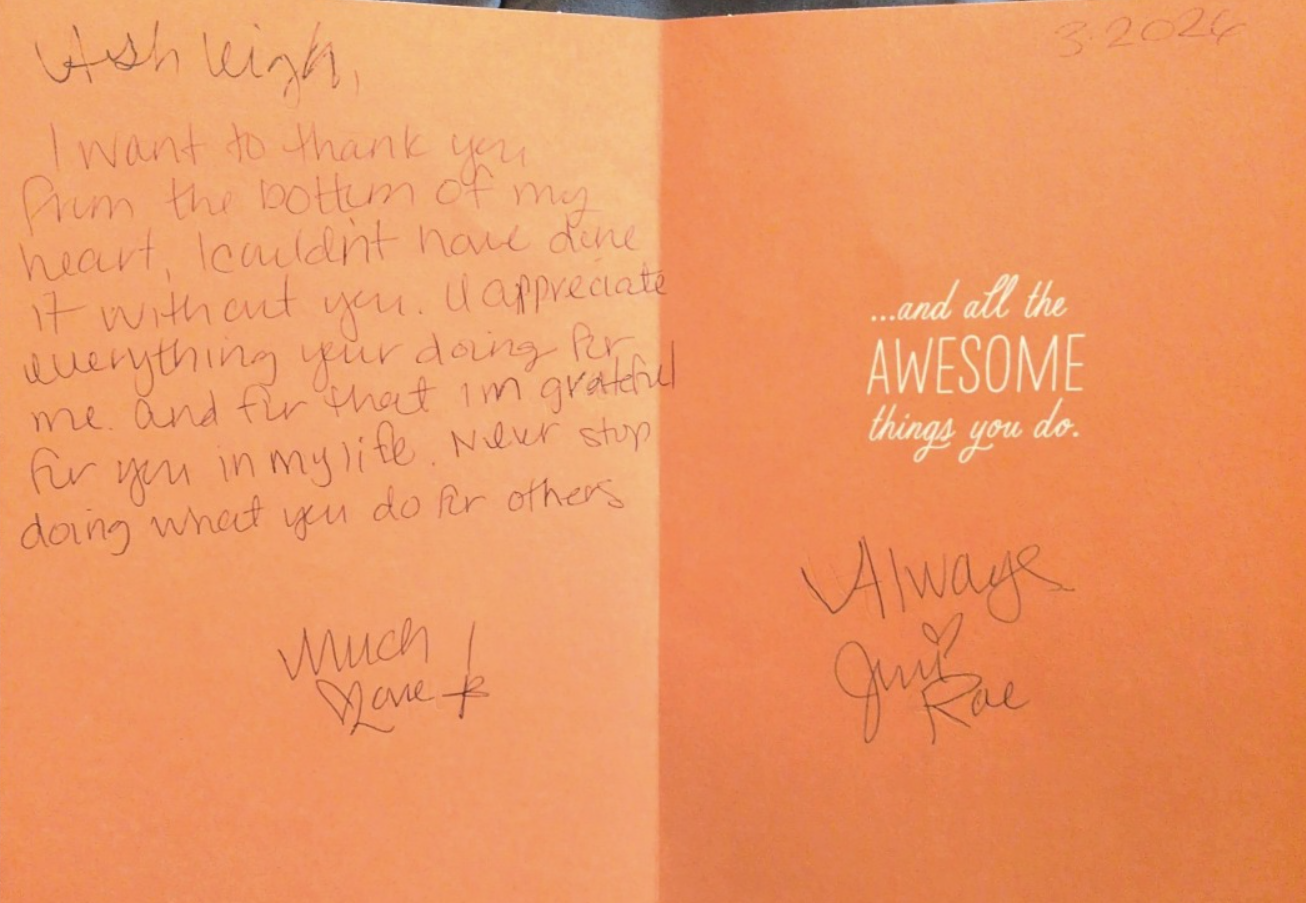 Ashleigh,
I want to thank you
from the bottom of my
heart, I couldn't have done
it without you. I appreciate
everything your doing for
me. and for that im grateful
for you in my life. Never stop
doing what you do for others
Much
Love
3.2026
...and all the
AWESOME
things you do.
Always
Rae